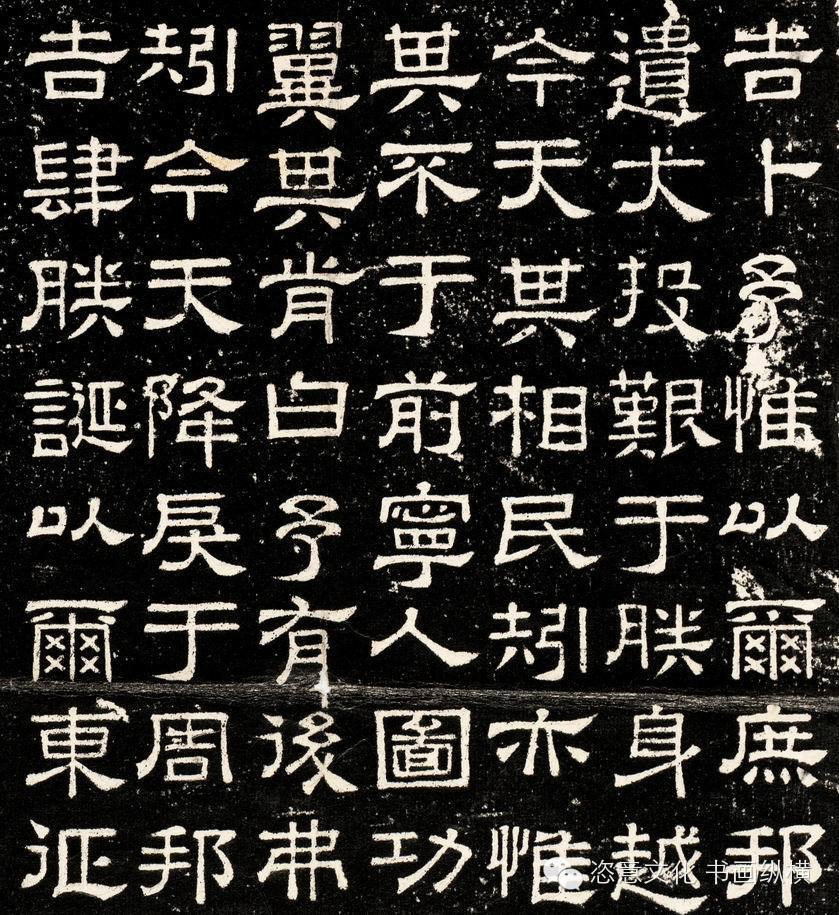 吉卜予惟以爾庶邦
遺大投艱于朕身越
今天其相民矧亦惟
其不于前寧人圖功
翼其肯曰予有後弗
矧今天降戾于周邦
吉肆朕誕以爾東征
恣意文化 书画纵横